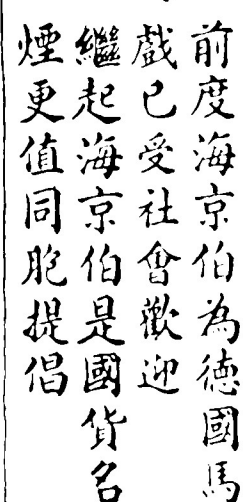 前度海京伯為德國馬
戲已受社會歡迎
繼起海京伯是國貨名
煙更值同胞提倡